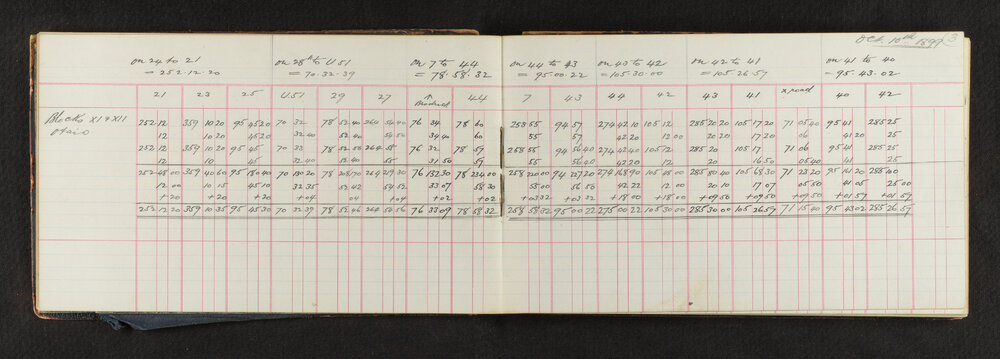 Oct. 10th 1899 3
on 24 to 21 on 28A to U51 on 7 to 44 on 44 to 43 on 43 to 42 on 42 to 41 on 41 to 40
= 252.12.20 = 70.32.39 = 78.58.32 = 95.00.22 = 105.30.00 = 105.26.57 = 95.43.02
21 23 25 U51 29 27 44 7 43 44 42 43 41 x road 40 42
Blocks XI & XII 252 12 359 10 20 95 45 20 70 32 78 52 40 264 54 40 76 34 78 60 258 55 94 57 274 42 10 105 12 285 20 20 105 17 20 71 05 40 95 41 285 25
12 10 20 45 20 32 40 52 40 54 50 34 40 60 55 57 42 20 12 00 20 20 17 20 06 41 20 25
252 12 359 10 20 95 45 70 32 78 52 50 264 55 76 32 78 59 258 55 94 56 40 274 42 20 105 12 285 20 105 17 71 06 95 41 285 25
12 10 45 32 40 52 40 55 31 50 59 55 56 40 42 20 12 20 16 50 05 40 41 25
252 48 00 359 40 60 95 180 40 70 130 20 78 208 170 264 219 30 76 132 30 78 234 00 258 220 00 94 227 20 274 168 90 105 48 00 285 80 40 105 68 30 71 23 20 95 164 20 285 100
12 00 10 15 45 10 32 35 52 42 54 52 33 07 58 30 55 00 56 50 42 22 12 00 20 10 17 07 05 50 41 05 25 00
+20 +20 +20 +04 +04 +04 +02 +02 +03 32 +03 32 +18 00 +18 00 +09 50 +09 50 +09 50 +01 57 +01 57
252 12 20 359 10 35 95 45 30 70 32 39 78 52 46 264 54 56 76 33 09 78 58 32 258 58 32 95 00 22 275 00 22 105 30 00 285 30 00 105 26 57 71 15 40 95 43 02 285 26 57